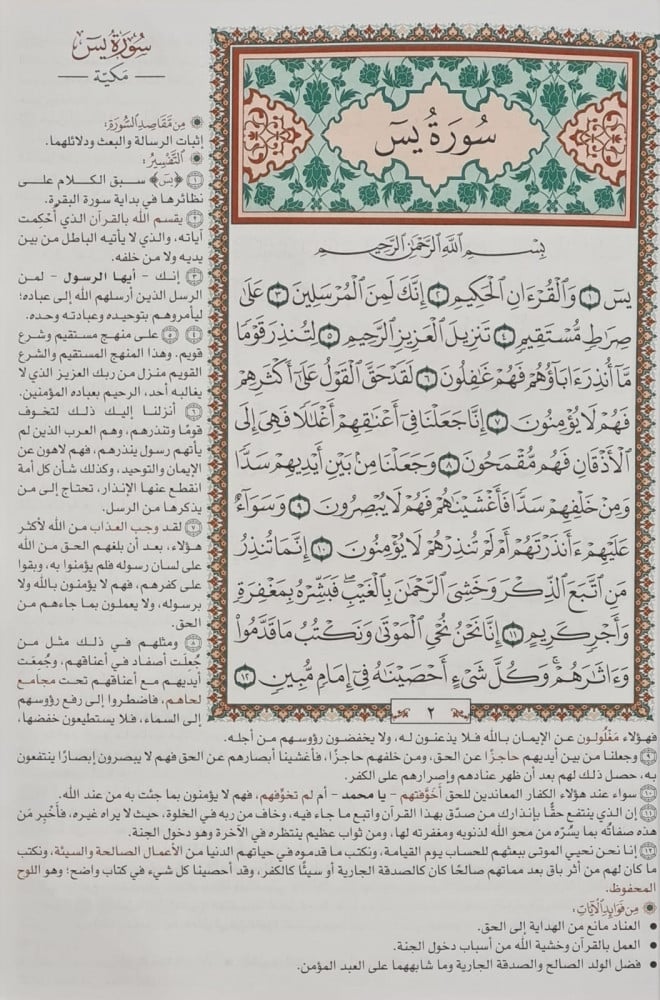 سُورَةُ يسٓ
مَكيّة
سُورَةُ يسٓ
بِسْمِ ٱللَّهِ ٱلرَّحْمَٰنِ ٱلرَّحِيمِ
يسٓ ۝١ وَٱلْقُرْءَانِ ٱلْحَكِيمِ ۝٢ إِنَّكَ لَمِنَ ٱلْمُرْسَلِينَ ۝٣ عَلَىٰ
صِرَٰطٍ مُّسْتَقِيمٍ ۝٤ تَنزِيلَ ٱلْعَزِيزِ ٱلرَّحِيمِ ۝٥ لِتُنذِرَ قَوْمًا
مَّآ أُنذِرَ ءَابَآؤُهُمْ فَهُمْ غَٰفِلُونَ ۝٦ لَقَدْ حَقَّ ٱلْقَوْلُ عَلَىٰٓ أَكْثَرِهِمْ
فَهُمْ لَا يُؤْمِنُونَ ۝٧ إِنَّا جَعَلْنَا فِىٓ أَعْنَٰقِهِمْ أَغْلَٰلًا فَهِىَ إِلَى
ٱلْأَذْقَانِ فَهُم مُّقْمَحُونَ ۝٨ وَجَعَلْنَا مِنۢ بَيْنِ أَيْدِيهِمْ سَدًّا
وَمِنْ خَلْفِهِمْ سَدًّا فَأَغْشَيْنَٰهُمْ فَهُمْ لَا يُبْصِرُونَ ۝٩ وَسَوَآءٌ
عَلَيْهِمْ ءَأَنذَرْتَهُمْ أَمْ لَمْ تُنذِرْهُمْ لَا يُؤْمِنُونَ ۝١٠ إِنَّمَا تُنذِرُ
مَنِ ٱتَّبَعَ ٱلذِّكْرَ وَخَشِىَ ٱلرَّحْمَٰنَ بِٱلْغَيْبِ ۖ فَبَشِّرْهُ بِمَغْفِرَةٍ
وَأَجْرٍ كَرِيمٍ ۝١١ إِنَّا نَحْنُ نُحْىِ ٱلْمَوْتَىٰ وَنَكْتُبُ مَا قَدَّمُوا۟
وَءَاثَٰرَهُمْ ۚ وَكُلَّ شَىْءٍ أَحْصَيْنَٰهُ فِىٓ إِمَامٍ مُّبِينٍ ۝١٢
٢
◉ مِن مَّقَاصِدِ السُّورَةِ:
إثبات الرسالة والبعث ودلائلهما.
◉ التَّفْسِيرُ:
١ ﴿يسٓ﴾ سبق الكلام على
نظائرها في بداية سورة البقرة.
٢ يقسم الله بالقرآن الذي أُحْكِمت
آياته، والذي لا يأتيه الباطل من بين
يديه ولا من خلفه.
٣ إنك - أيها الرسول - لمن
الرسل الذين أرسلهم الله إلى عباده؛
ليأمروهم بتوحيده وعبادته وحده.
٤ ٥ على منهج مستقيم وشرع
قويم. وهذا المنهج المستقيم والشرع
القويم منزل من ربك العزيز الذي لا
يغالبه أحد، الرحيم بعباده المؤمنين.
٦ أنزلنا إليك ذلك لتخوف
قومًا وتنذرهم، وهم العرب الذين لم
يأتهم رسول ينذرهم، فهم لاهون عن
الإيمان والتوحيد، وكذلك شأن كل أمة
انقطع عنها الإنذار، تحتاج إلى من
يذكرها من الرسل.
٧ لقد وجب العذاب من الله لأكثر
هؤلاء، بعد أن بلغهم الحق من الله
على لسان رسوله فلم يؤمنوا به، وبقوا
على كفرهم، فهم لا يؤمنون بالله ولا
برسوله، ولا يعملون بما جاءهم من
الحق.
٨ ومثلهم في ذلك مثل من
جُعلت أصفاد في أعناقهم، وجُمعَت
أيديهم مع أعناقهم تحت مجامع
لحاهم، فاضطروا إلى رفع رؤوسهم
إلى السماء، فلا يستطيعون خفضها،
فهؤلاء مَغْلُولون عن الإيمان بالله فلا يذعنون له، ولا يخفضون رؤوسهم من أجله.
٩ وجعلنا من بين أيديهم حاجزًا عن الحق، ومن خلفهم حاجزًا، فأغشينا أبصارهم عن الحق فهم لا يبصرون إبصارًا ينتفعون
به، حصل ذلك لهم بعد أن ظهر عنادهم وإصرارهم على الكفر.
١٠ سواء عند هؤلاء الكفار المعاندين للحق أخَوَّفتهم - يا محمد - أم لم تخوِّفهم، فهم لا يؤمنون بما جئت به من عند الله.
١١ إن الذي ينتفع حقًّا بإنذارك من صدّق بهذا القرآن واتبع ما جاء فيه، وخاف من ربه في الخلوة، حيث لا يراه غيره، فأَخْبِر مَن
هذه صفاتُه بما يسُرّه من محو الله لذنوبه ومغفرته لها، ومن ثواب عظيم ينتظره في الآخرة وهو دخول الجنة.
١٢ إنا نحن نحيي الموتى ببعثهم للحساب يوم القيامة، ونكتب ما قدموه في حياتهم الدنيا من الأعمال الصالحة والسيئة، ونكتب
ما كان لهم من أثر باق بعد مماتهم صالحًا كان كالصدقة الجارية أو سيئًا كالكفر، وقد أحصينا كل شيء في كتاب واضح؛ وهو اللوح
المحفوظ.
◉ مِن فَوَابِدِ الْآيَاتِ:
• العناد مانع من الهداية إلى الحق.
• العمل بالقرآن وخشية الله من أسباب دخول الجنة.
• فضل الولد الصالح والصدقة الجارية وما شابههما على العبد المؤمن.